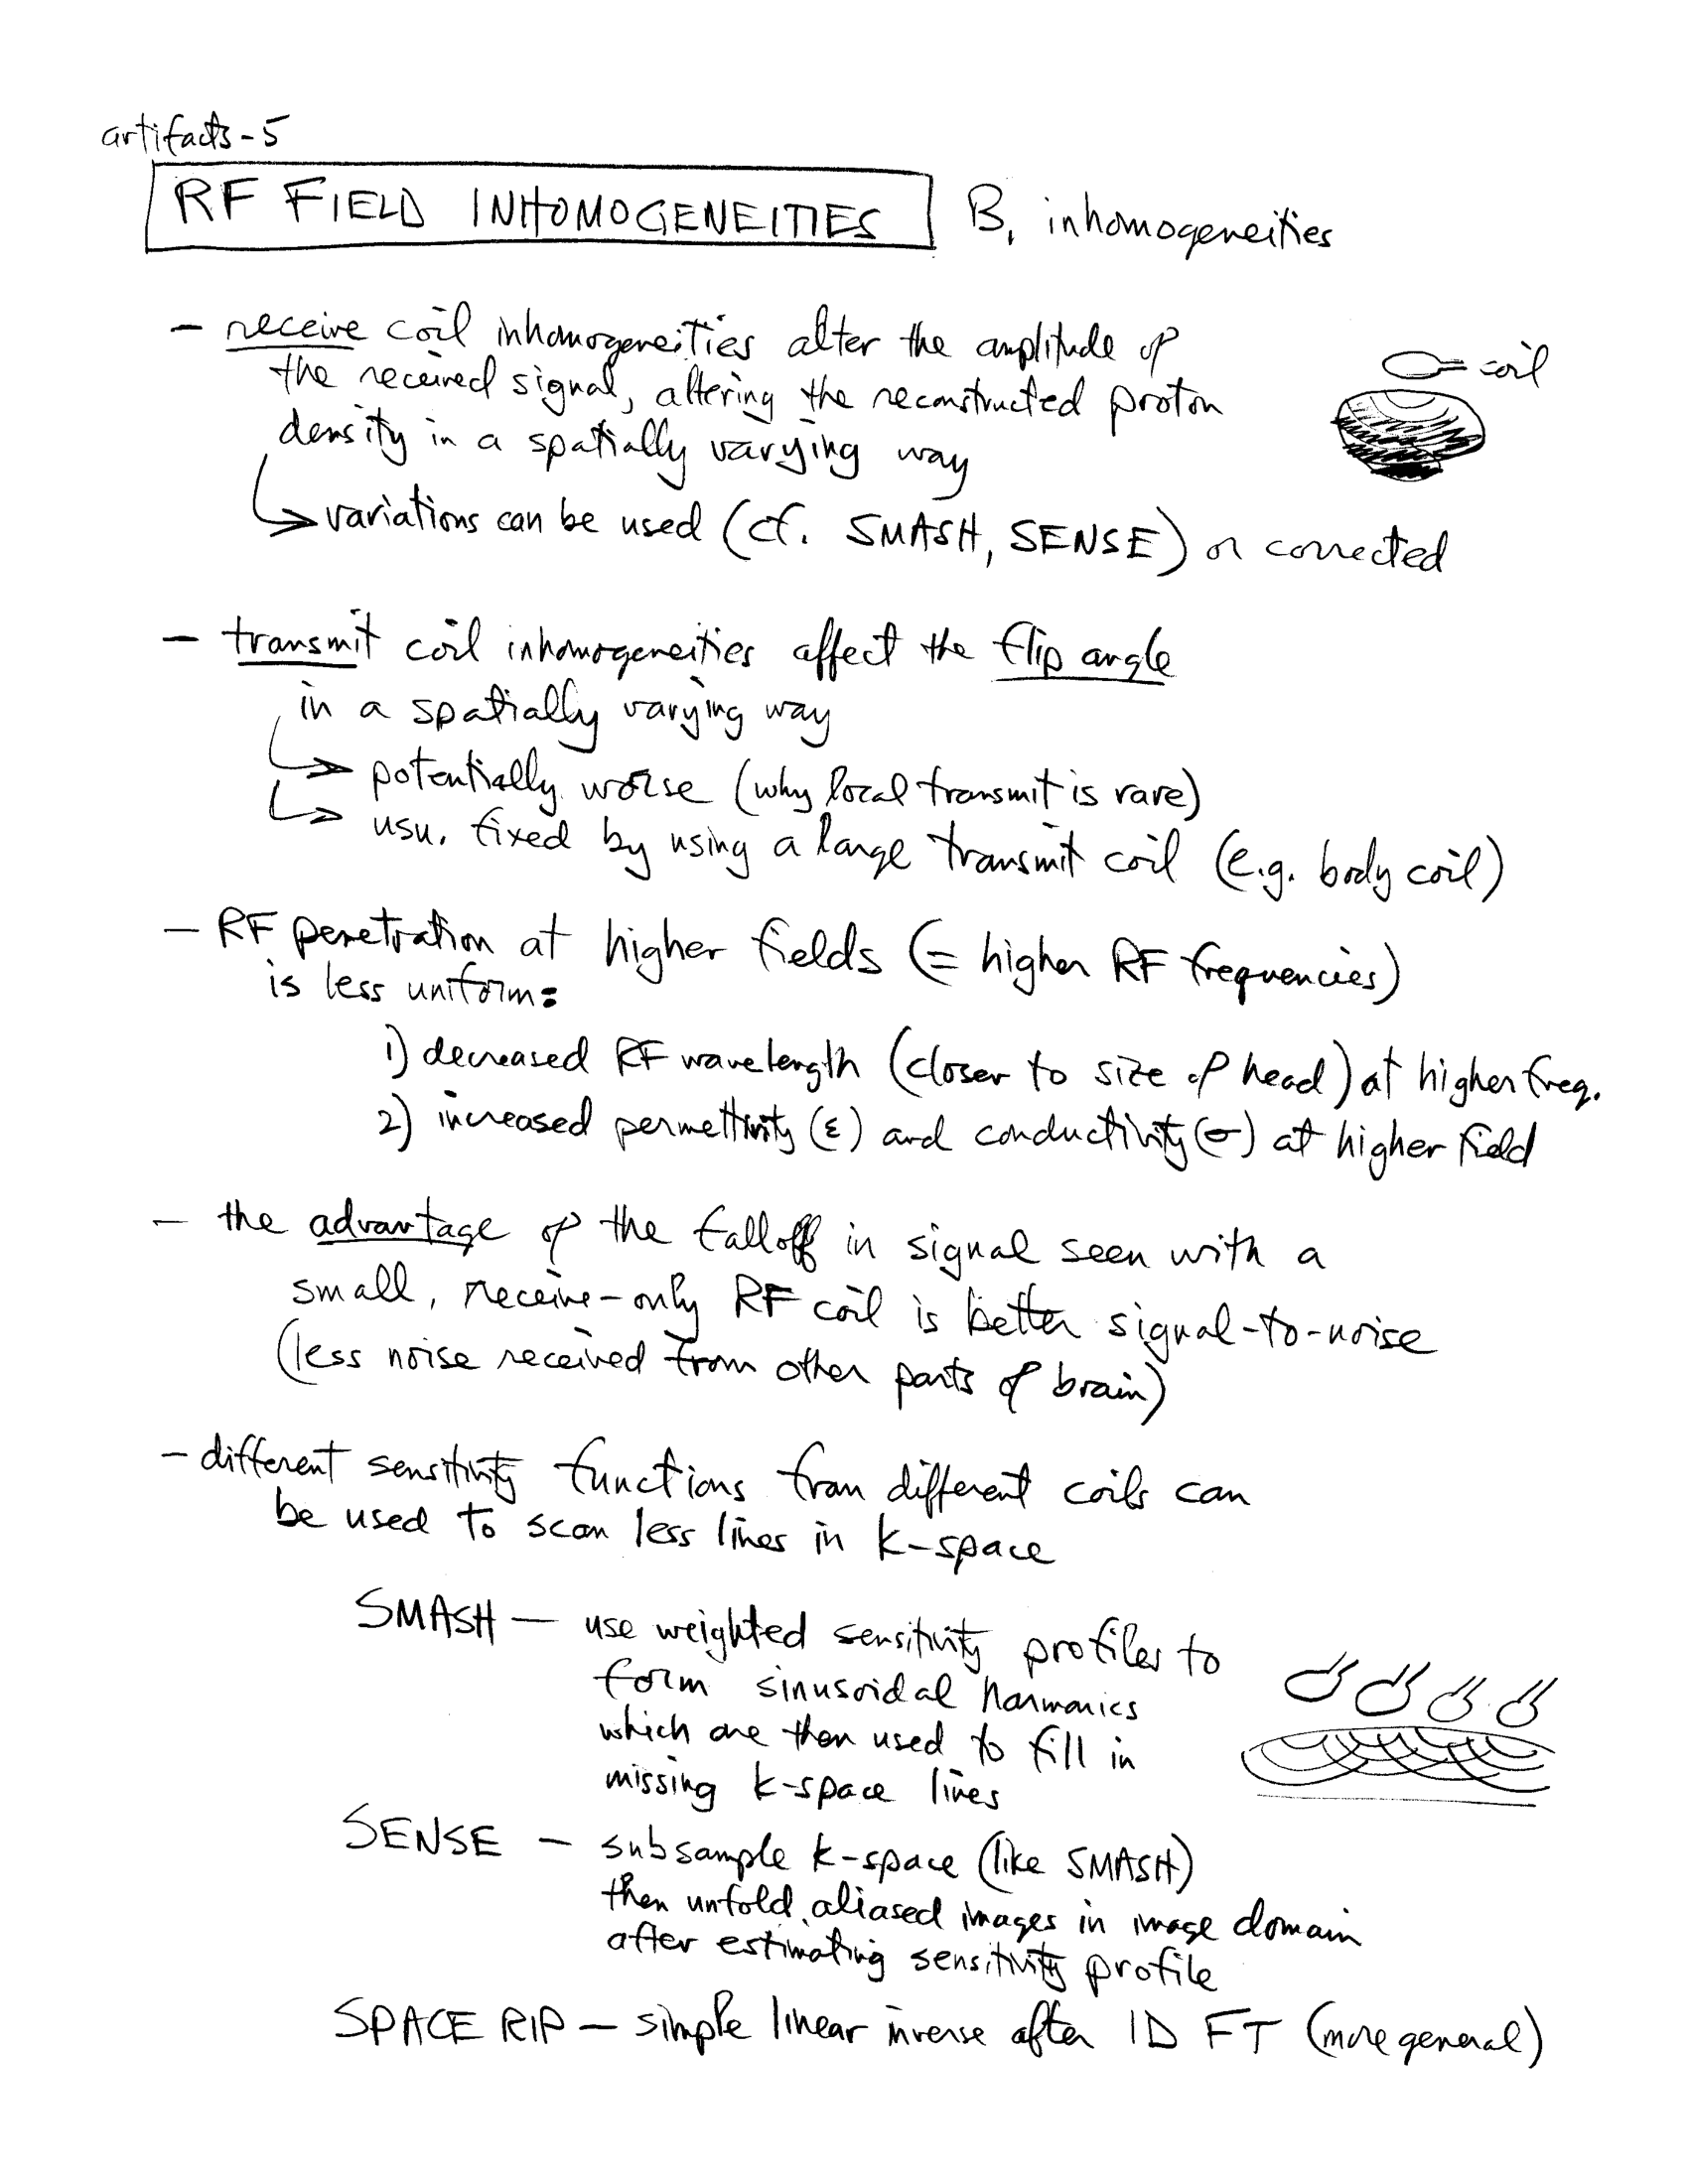 artifacts-5
RF FIELD INHOMOGENEITIES
B₁ inhomogeneities
- receive coil inhomogeneities alter the amplitude of
the received signal, altering the reconstructed proton
density in a spatially varying way
coil
↳ variations can be used (cf. SMASH, SENSE) or corrected
- transmit coil inhomogeneities affect the flip angle
in a spatially varying way
↳ potentially worse (why local transmit is rare)
↳ usu. fixed by using a large transmit coil (e.g. body coil)
- RF penetration at higher fields (= higher RF frequencies)
is less uniform:
1) decreased RF wavelength (closer to size of head) at higher freq.
2) increased permettivity (ε) and conductivity (σ) at higher field
- the advantage of the falloff in signal seen with a
small, receive-only RF coil is better signal-to-noise
(less noise received from other parts of brain)
- different sensitivity functions from different coils can
be used to scan less lines in k-space
SMASH - use weighted sensitivity profiles to
form sinusoidal harmonics
which are then used to fill in
missing k-space lines
SENSE - subsample k-space (like SMASH)
then unfold aliased images in image domain
after estimating sensitivity profile
SPACE RIP - simple linear inverse after 1D FT (more general)